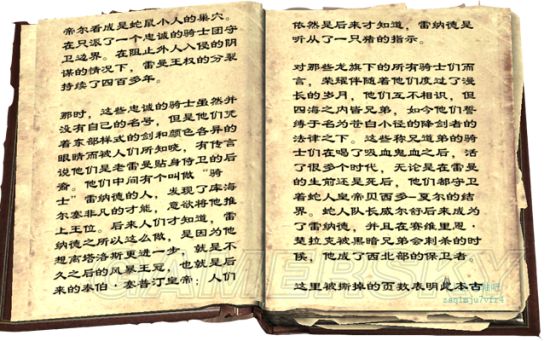 帝尔看成是蛇鼠小人的巢穴。
在只派了一个忠诚的骑士团守
卫边界。在阻止外人入侵的阴
谋的情况下，雷曼王权的分裂
持续了四百多年。
那时，这些忠诚的骑士虽然并
没有自己的名号，但是他们凭
着东部样式的剑和颜色各异的
眼睛而被人们所知晓，有传言
说他们是老雷曼贴身侍卫的后
裔。他们中间有个叫做“骑
士”雷纳德的人，发现了库海
尔塞非凡的才能，意欲将他推
上王位。后来人们才知道，雷
纳德之所以这么做，是因为他
想离塔洛斯更进一步，就是不
久之后的风暴王冠，也就是后
来的泰伯·塞普汀皇帝；人们
依然是后来才知道，雷纳德是
听从了一只猪的指示。
对那些龙旗下的所有骑士们而
言，荣耀伴随着他们度过了漫
长的岁月，他们互不相识，但
四海之内皆兄弟，如今他们誓
缚于名为苍白小径的降剑者的
法律之下。这些称兄道弟的骑
士们在喝了吸血鬼血之后，活
了很多个时代，无论是在雷曼
的生前还是死后，他们都守卫
着蛇人皇帝贝西多-夏尔的结
界。蛇人队长威尔舒后来成为
了雷纳德，并且在赛维里恩·
楚拉克被黑暗兄弟会刺杀的时
候，他成了西北部的保卫者
这里被撕掉的页数表明此本古
GAMERSKY